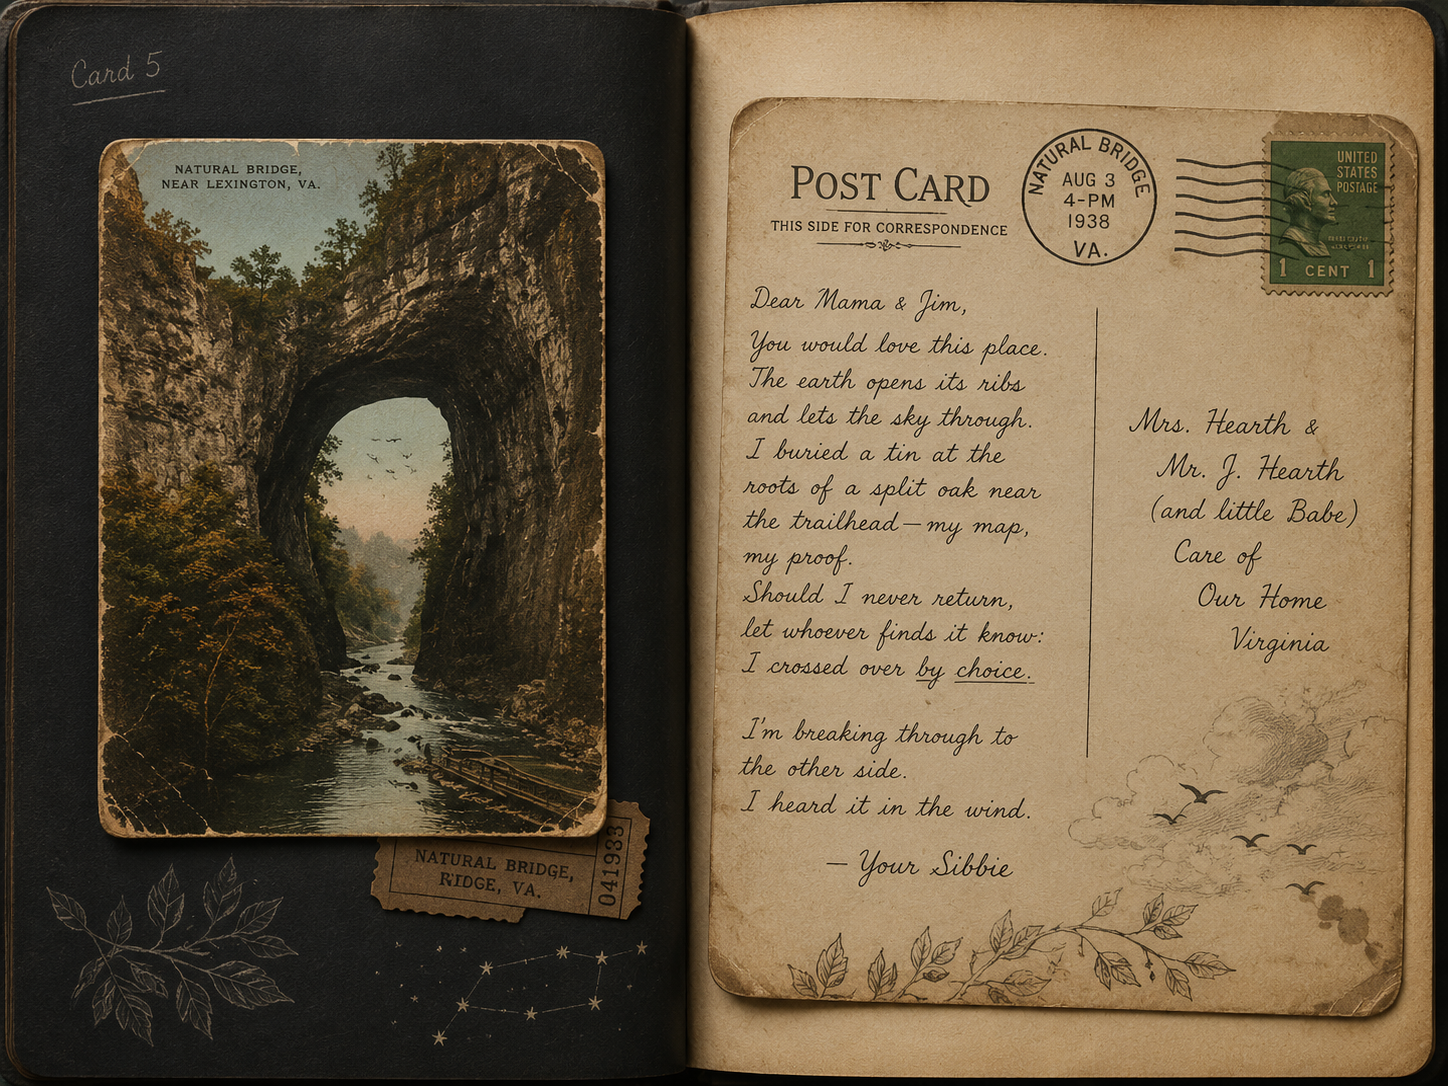 Card 5
NATURAL BRIDGE,
NEAR LEXINGTON, VA.
NATURAL BRIDGE,
RIDGE, VA.
041933
POST CARD
THIS SIDE FOR CORRESPONDENCE
NATURAL BRIDGE
AUG 3
4-PM
1938
VA.
UNITED
STATES
POSTAGE
1 CENT 1
Dear Mama & Jim,
You would love this place.
The earth opens its ribs
and lets the sky through.
I buried a tin at the
roots of a split oak near
the trailhead — my map,
my proof.
Should I never return,
let whoever finds it know:
I crossed over by choice.
I'm breaking through to
the other side.
I heard it in the wind.
— Your Sibbie
Mrs. Hearth &
Mr. J. Hearth
(and little Babe)
Care of
Our Home
Virginia